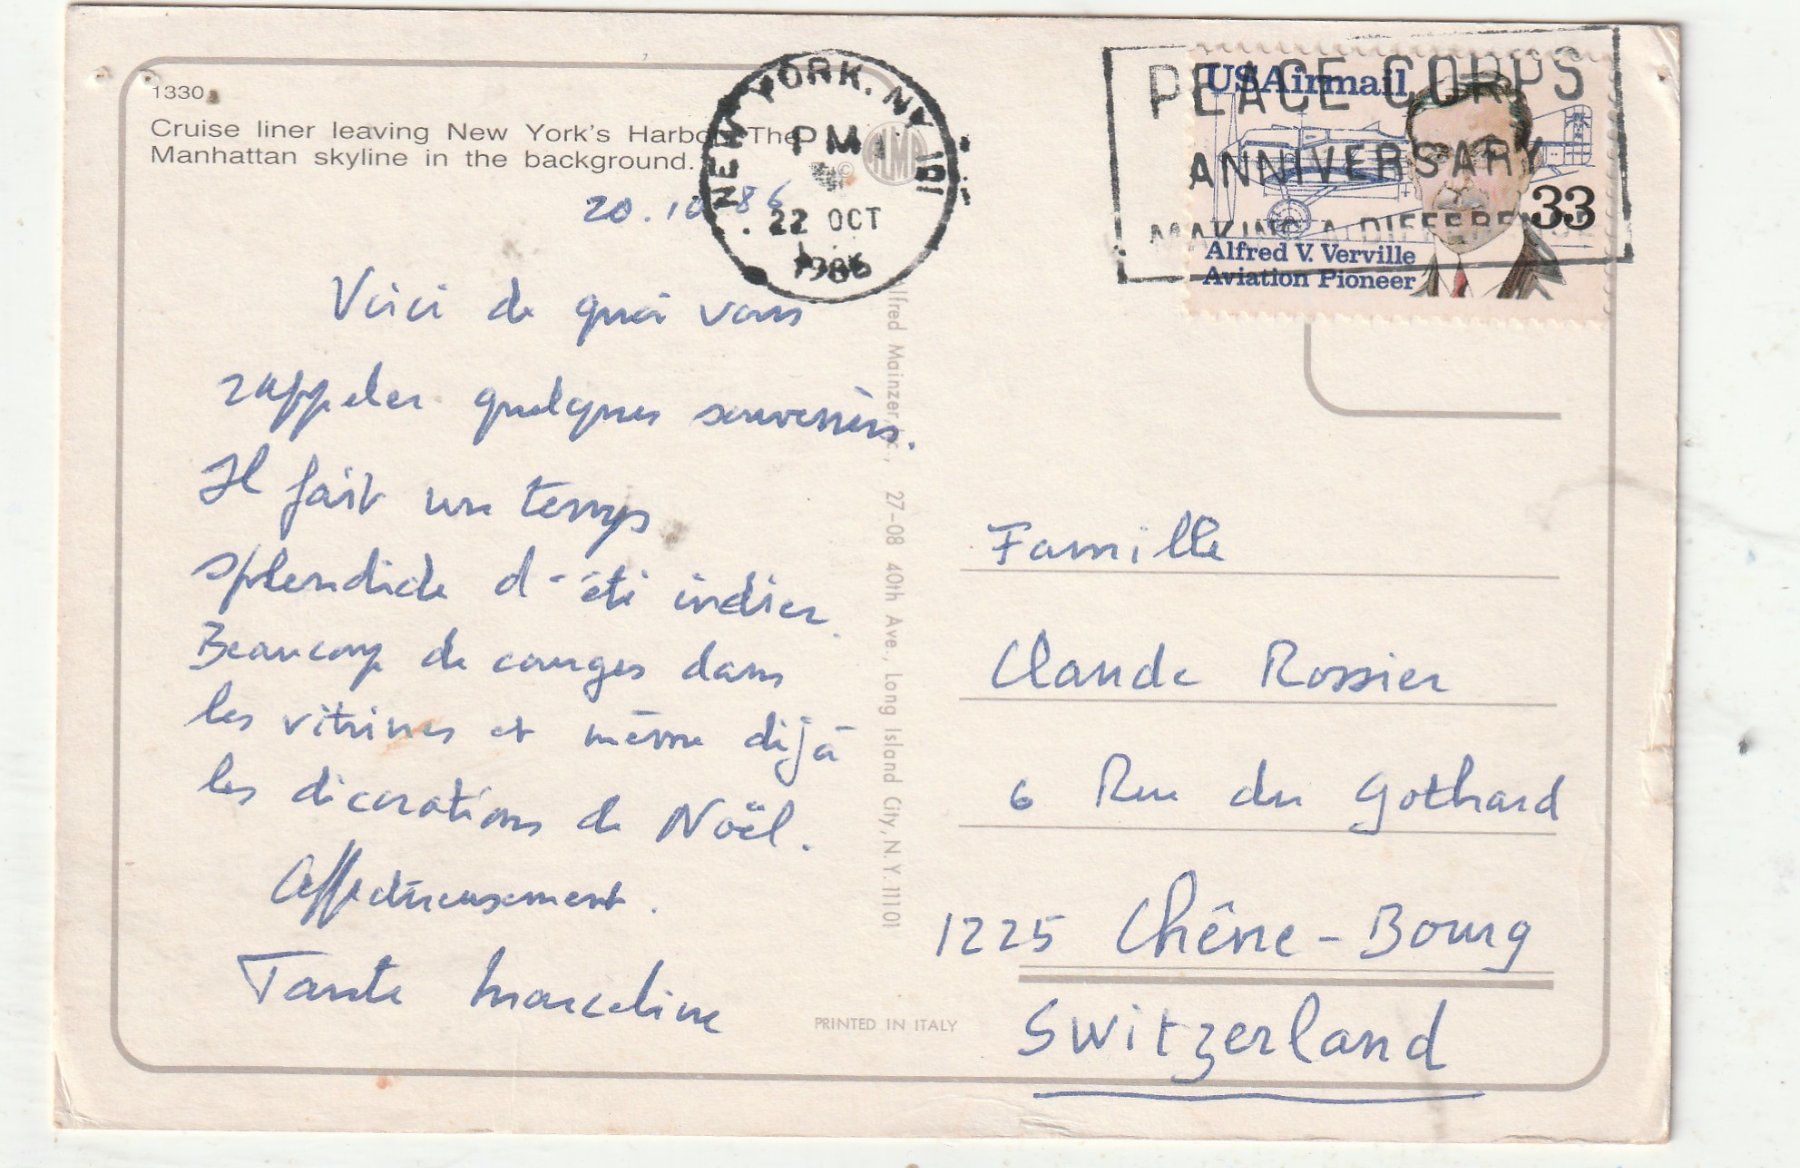 1330
Cruise liner leaving New York's Harbor. The
Manhattan skyline in the background.
20.10.86
Voici de quoi vous
rappeler quelques souvenirs.
Il fait un temps
splendide d'été indien.
Beaucoup de courges dans
les vitrines et même déjà
les décorations de Noël.
Affectueusement.
Tante Marceline
NEW YORK, NY 101
PM
22 OCT
1986
PEACE CORPS
ANNIVERSARY
MAKING A DIFFERENCE
USAirmail
33
Alfred V. Verville
Aviation Pioneer
Alfred Mainzer Inc., 27-08 40th Ave., Long Island City, N.Y. 11101
PRINTED IN ITALY
Famille
Claude Rossier
6 Rue du Gothard
1225 Chêne-Bourg
Switzerland